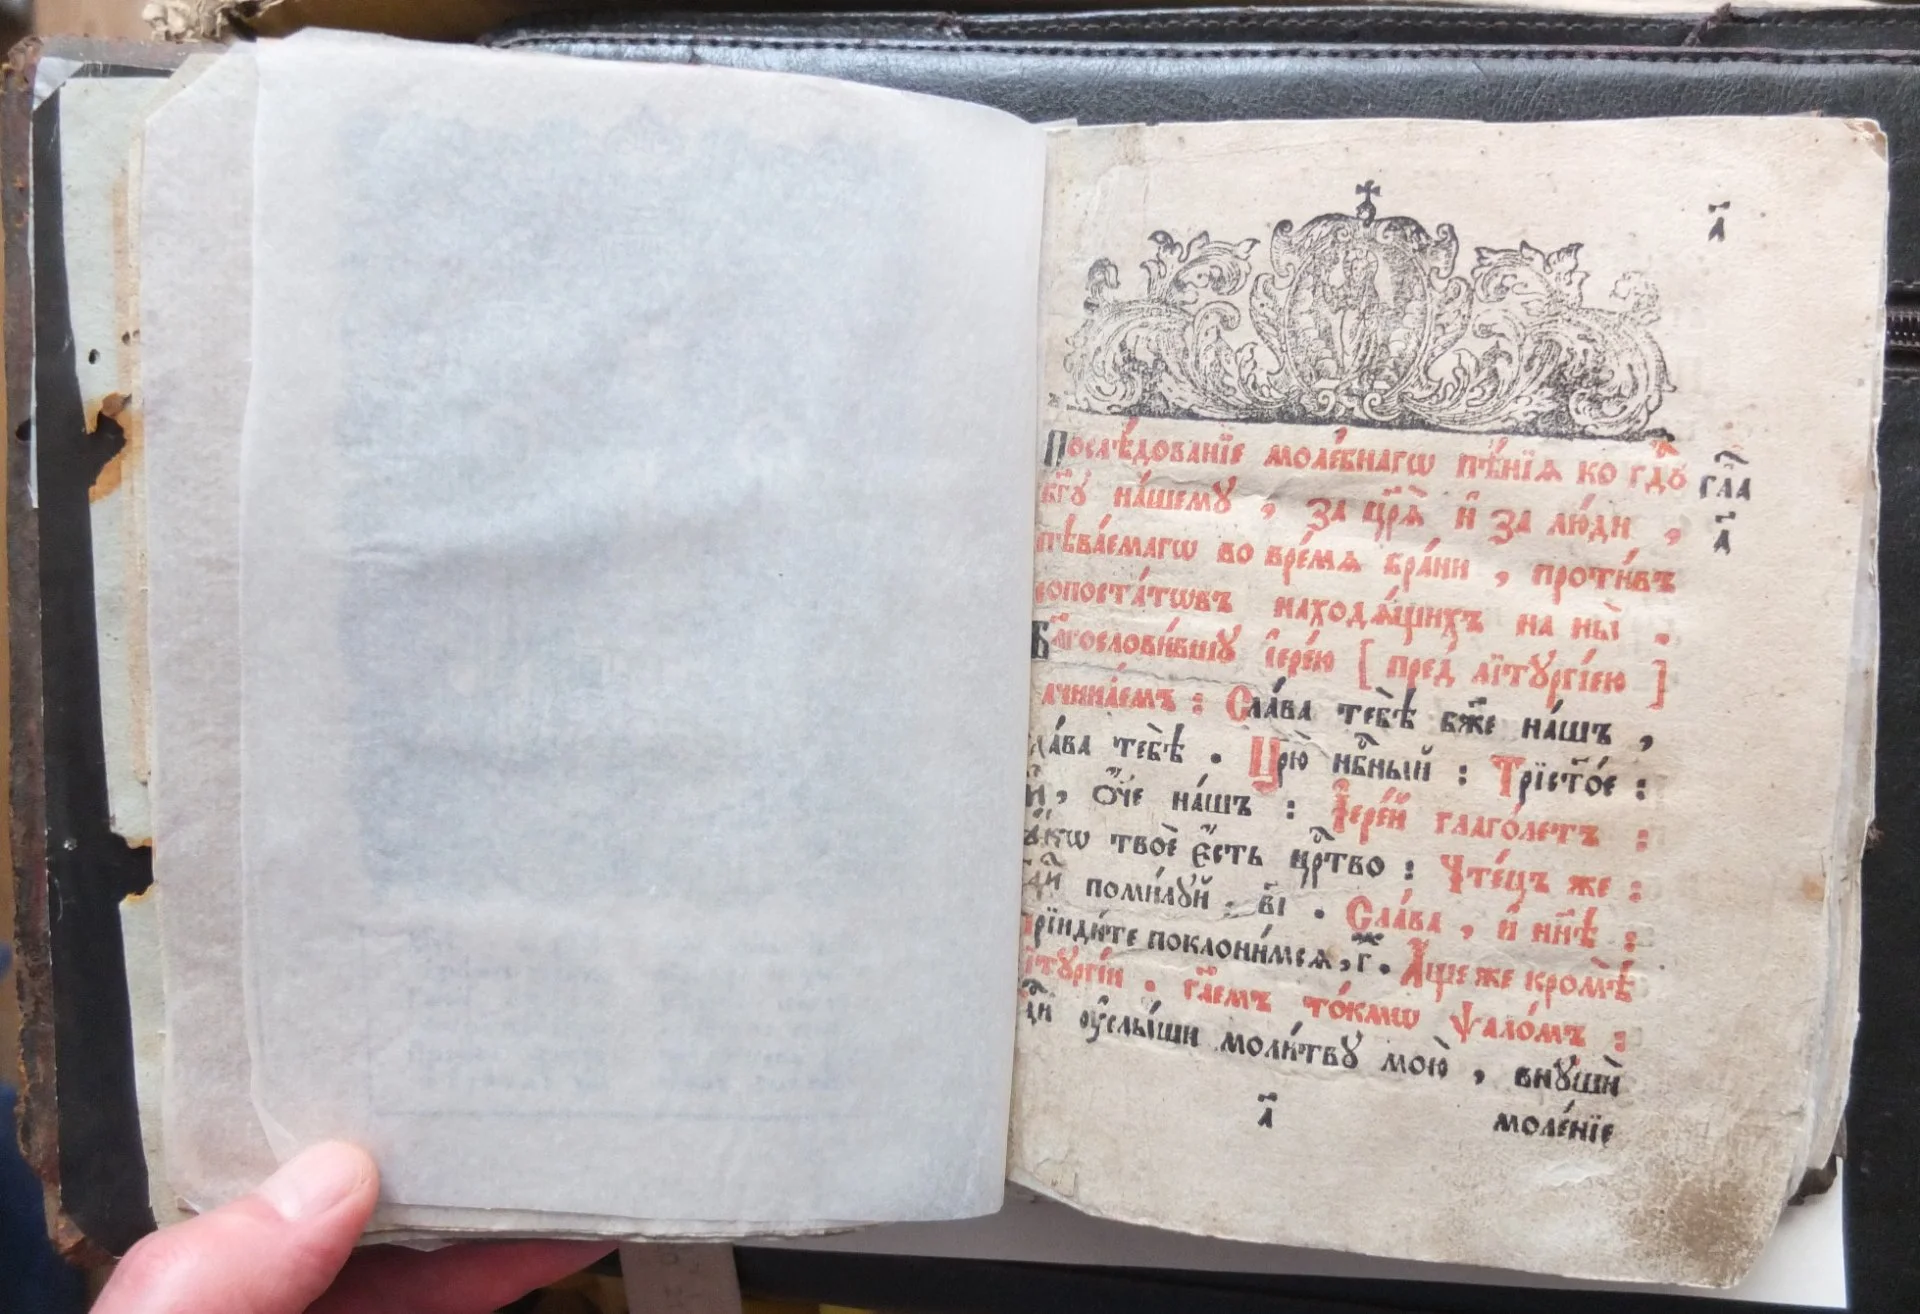 а҃
Послѣ́дованїе моле́бнагѡ пѣ́нїѧ ко гдⷭ҇ꙋ
бг҃ꙋ на́шемꙋ , за цр҃ѧ̀ и҆ за лю́ди ,
пѣва́емагѡ во вре́мѧ бра́ни , проти́въ
сопоста́тѡвъ находѧ́щихъ на ны̀ .
гла
а҃
Блгⷭ҇ослови́вшꙋ і҆ере́ю [ пред̾ лїтꙋргі́ею ]
начина́емъ : Сла́ва тебѣ̀ бж҃е на́шъ ,
сла́ва тебѣ̀ . Цр҃ю̀ нбⷭ҇ный : Трїсто́е :
Ѻ҆́ч҃е на́шъ : І҆ере́й глаго́летъ :
ꙗ҆́кѡ твоѐ є҆́сть црⷭ҇тво : Чте́цъ же :
гдⷭ҇и поми́лꙋй . в҃і . Сла́ва , и҆ нн҃ѣ :
прїиди́те поклони́мсѧ , г҃ . А҆́ще же кромѣ̀
лїтꙋргі́и . гл҃емъ то́кмѡ ѱало́мъ :
гдⷭ҇и ᲂу҆слы́ши моли́твꙋ мою̀ , внꙋшѝ
а҃
моле́нїе